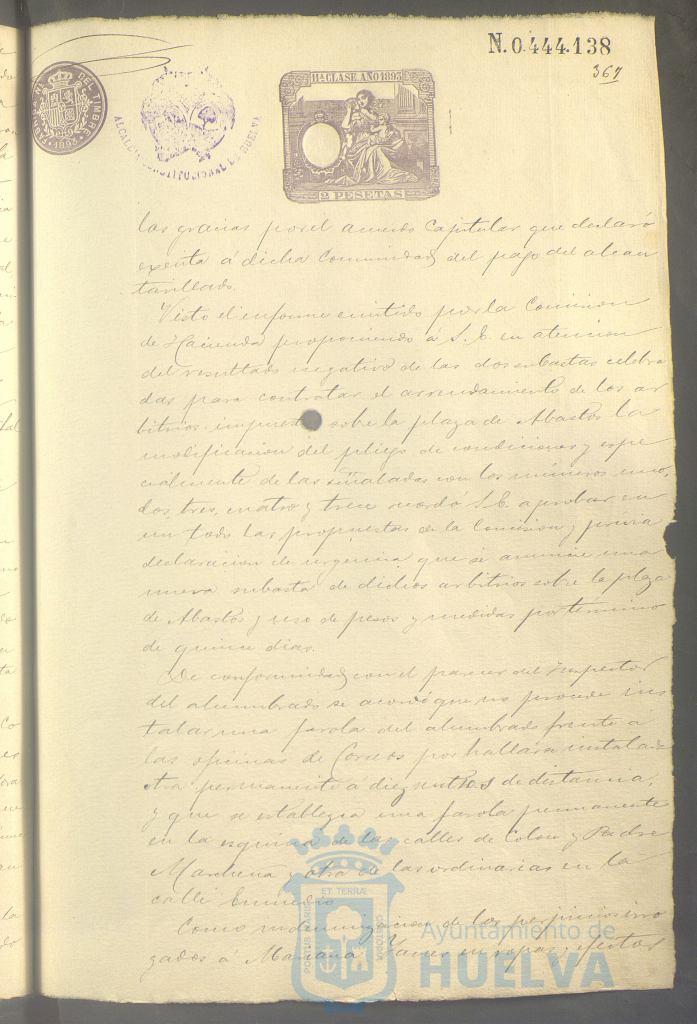 N. 0.444.138
367
FABRICA NAL DEL TIMBRE
1893
ALCALDIA CONSTITUCIONAL DE HUELVA
11ª CLASE. AÑO 1893
2 PESETAS
las gracias por el acuerdo capitular que declaró
exenta á dicha Comunidad del pago del alcan
tarillado.
Visto el informe emitido por la Comision
de Hacienda proponiendo á S. E. en atencion
del resultado negativo de las dos subastas celebra
das para contratar el arrendamiento de los ar
bitrios impuestos sobre la plaza de Abastos la
modificacion del pliego de condiciones y espe
cialmente de las señaladas con los números uno,
dos, tres, cuatro y trece acordó S. E. aprobar en
un todo las propuestas de la Comision y previa
declaracion de urgencia que se anuncie una
nueva subasta de dichos arbitrios sobre la plaza
de Abastos y uso de pesos y medidas por término
de quince dias.
De conformidad con el parecer del Inspector
del alumbrado se acordó que no procede ins
talar una farola del alumbrado frente á
las oficinas de Correos por hallarse instalada
otra permanente á diez metros de distancia,
y que se establezca una farola permanente
en la esquina de las calles de Colon y Padre
Marchena y otra de las ordinarias en la
calle Enmedio
Como indemnizacion de los perjuicios irro
gados á Mariana en ropas y efectos
PORTUS MARIS ET TERRÆ CUSTODIA
Ayuntamiento de
HUELVA